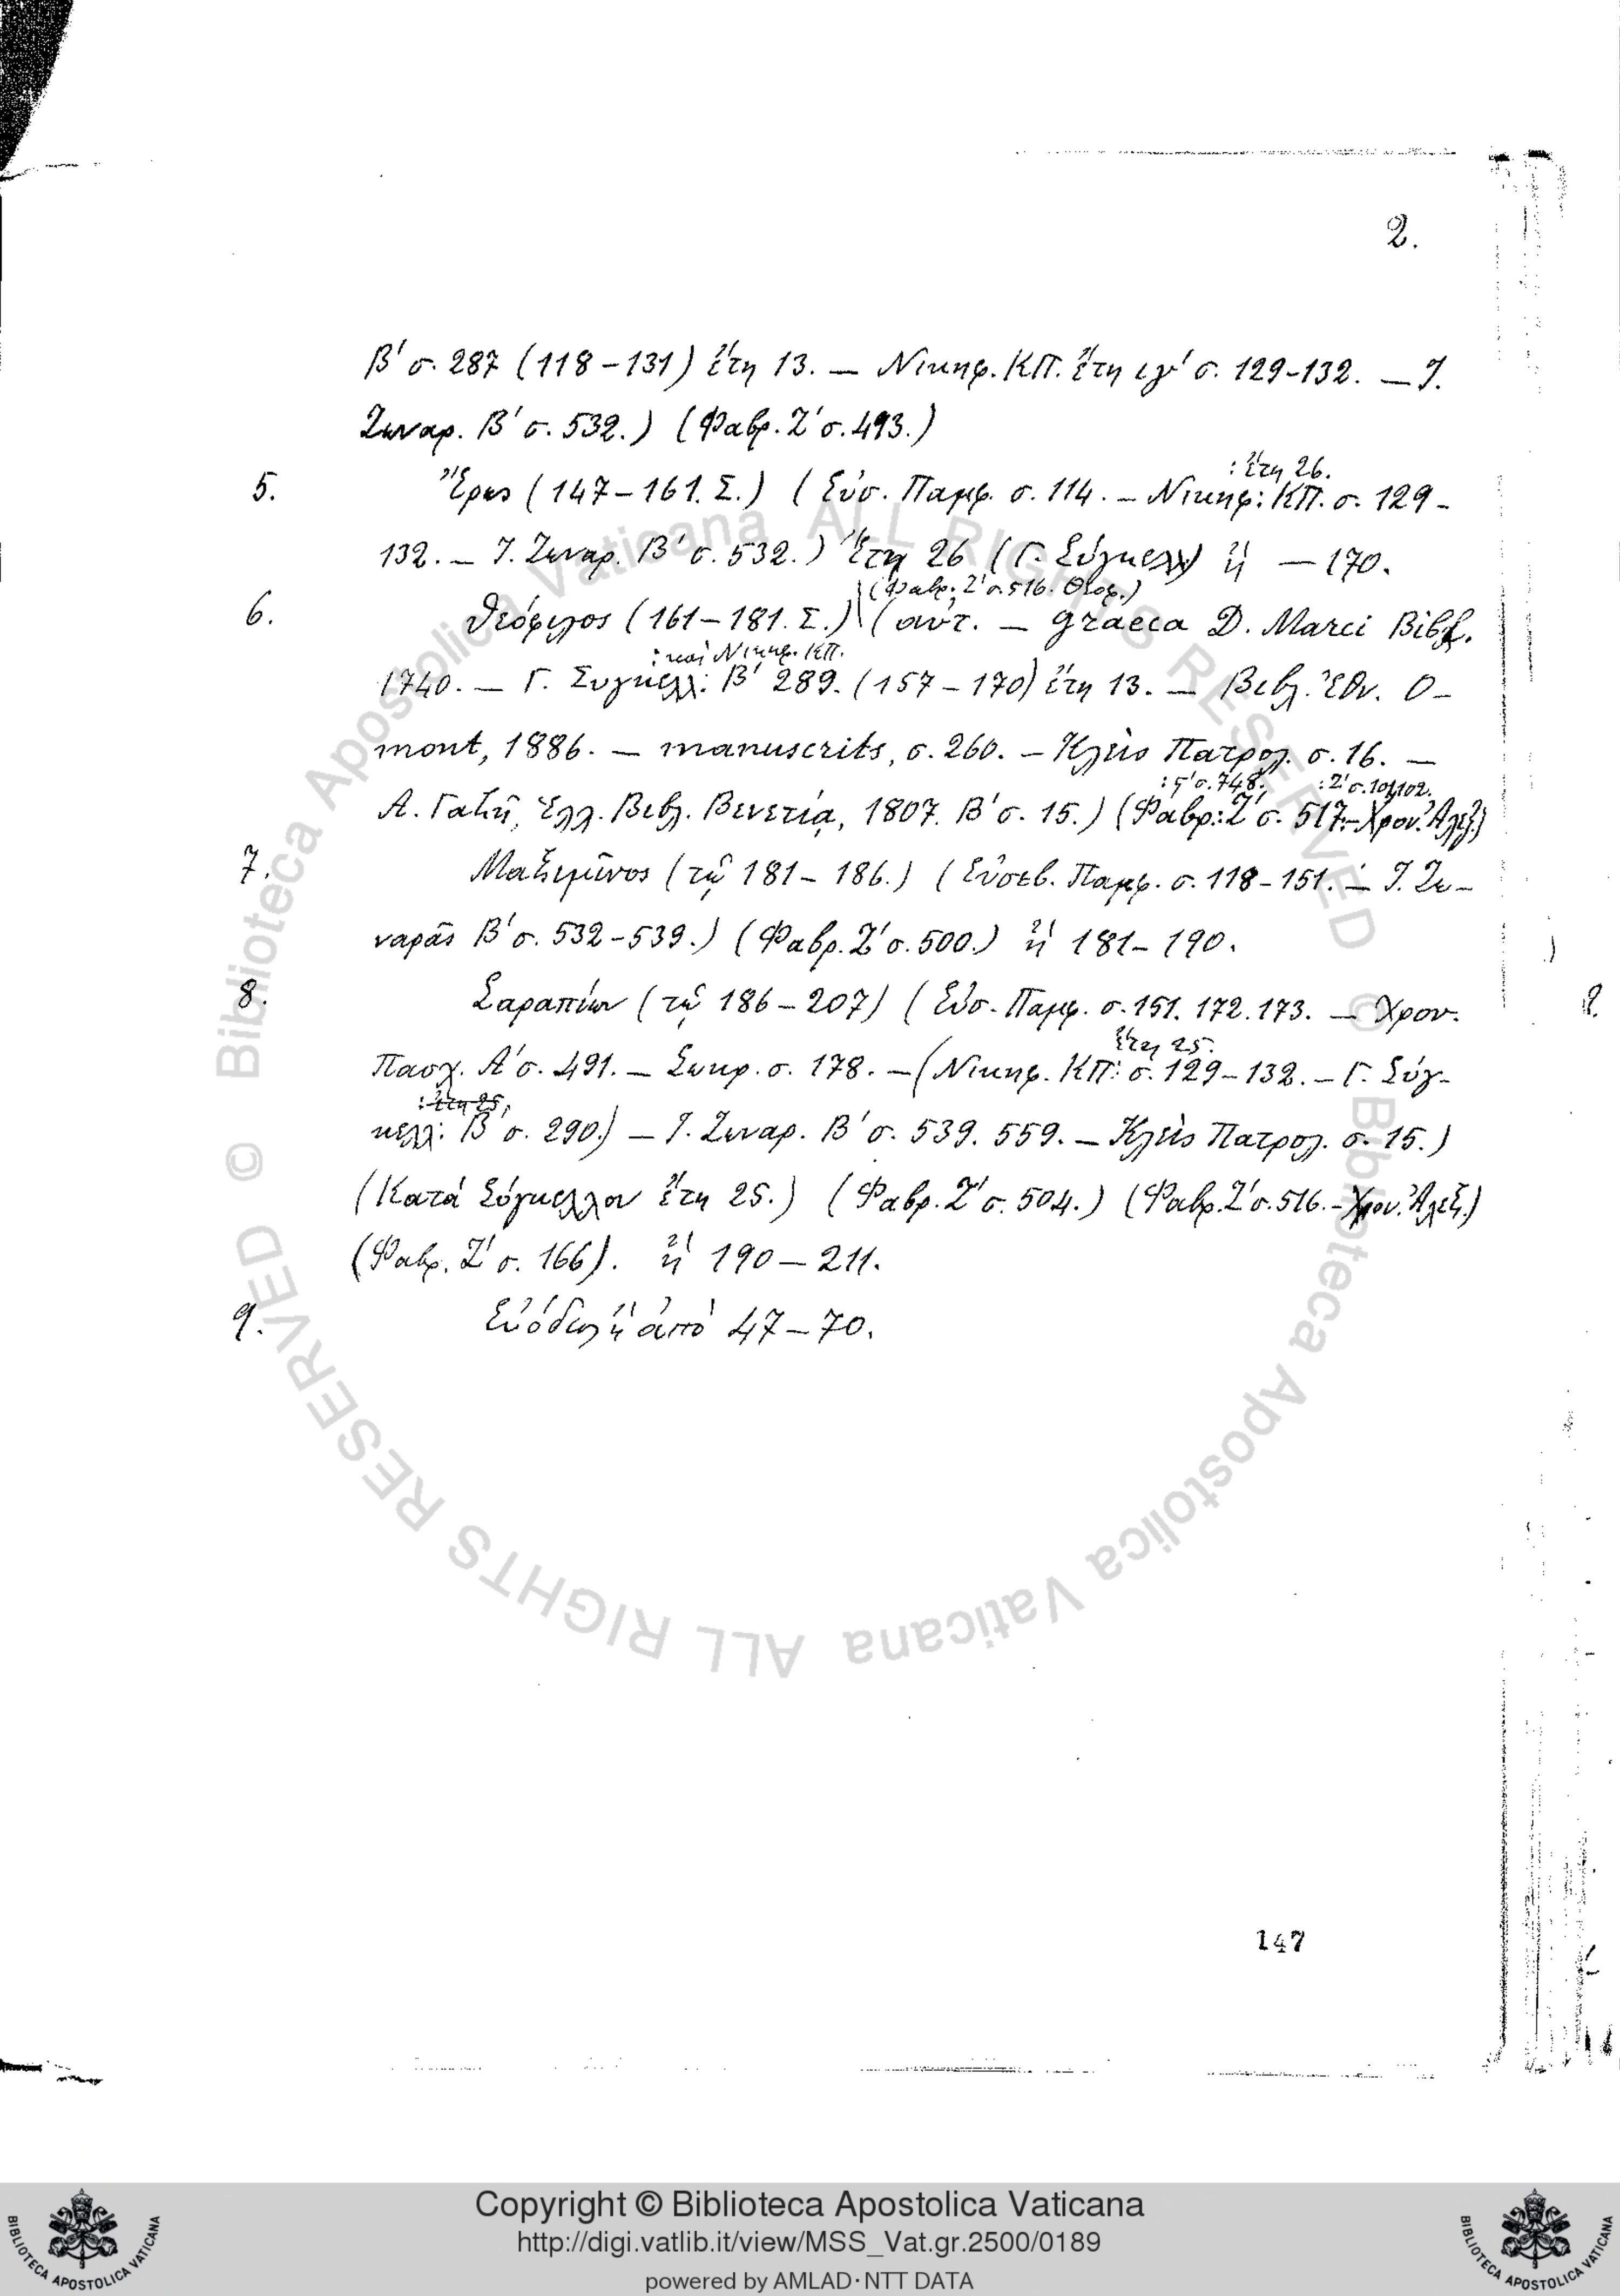 2.
Β′ σ. 287 (118-131) ἔτη 13. — Νικηφ. ΚΠ. ἔτη ιγ′ σ. 129-132. — Ἰ.
Ζωναρ. Β′ σ. 532.) (Φαβρ. Ζ′ σ. 493.)
: ἔτη 26.
5. Ἔρως (147-161. Σ.) (Εὐσ. Παμφ. σ. 114. — Νικηφ: ΚΠ. σ. 129-
132. — Ἰ. Ζωναρ. Β′ σ. 532.) Ἔτη 26 (Γ. Σύγκελλ) ἤ — 170.
(Φαβρ. Ζ′ σ. 516. Θεοφ.)
6. Θεόφιλος (161-181. Σ.) (αὐτ. — graeca D. Marci Bibl.
: καὶ Νικηφ. ΚΠ.
1740. — Γ. Συγκελλ: Β′ 289. (157-170) ἔτη 13. — Βιβλ. Ἐθν. O-
mont, 1886. — manuscrits, σ. 260. — Κλεὶς Πατρολ. σ. 16. —
: ϛ′ σ. 748. : Ζ′ σ. 101,102.
Α. Γαζῆ, Ἑλλ. Βιβλ. Βενετίᾳ, 1807. Β′ σ. 15.) (Φαβρ: Ζ′ σ. 517. - Χρον. Ἀλεξ.)
7. Μαξιμῖνος (τῷ 181-186.) (Εὐσεβ. Παμφ. σ. 118-151. — Ἰ. Ζω-
ναρᾶς Β′ σ. 532-539.) (Φαβρ. Ζ′ σ. 500.) ἤ 181-190.
8. Σαραπίων (τῷ 186-207) (Εὐσ. Παμφ. σ. 151. 172. 173. — Χρον.
ἔτη 25.
Πασχ. Α′ σ. 491. — Σωκρ. σ. 178. — (Νικηφ. ΚΠ: σ. 129-132. — Γ. Σύγ-
: ἔτη 25,
κελλ: Β′ σ. 290.) — Ἰ. Ζωναρ. Β′ σ. 539. 559. — Κλεὶς Πατρολ. σ. 15.)
(Κατά Σύγκελλον ἔτη 25.) (Φαβρ. Ζ′ σ. 504.) (Φαβρ. Ζ′ σ. 516. - Χρον. Ἀλεξ.)
(Φαβρ. Ζ′ σ. 166). ἤ 190-211.
9. ἤ ἀπὸ 47-70.
147
Copyright © Biblioteca Apostolica Vaticana
http://digi.vatlib.it/view/MSS_Vat.gr.2500/0189
powered by AMLAD·NTT DATA
© Biblioteca Apostolica Vaticana ALL RIGHTS RESERVED
© Biblioteca Apostolica Vaticana ALL RIGHTS RESERVED
BIBLIOTECA APOSTOLICA VATICANA
BIBLIOTECA APOSTOLICA VATICANA